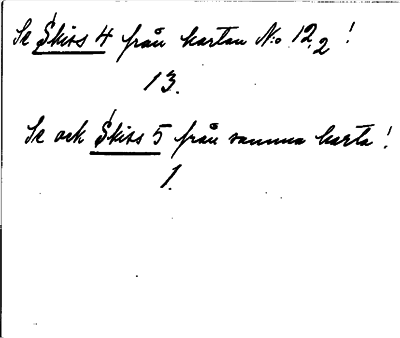 Se Skiss 4 från kartan N:o 12,2!
13.
Se och Skiss 5 från samma karta!
1.